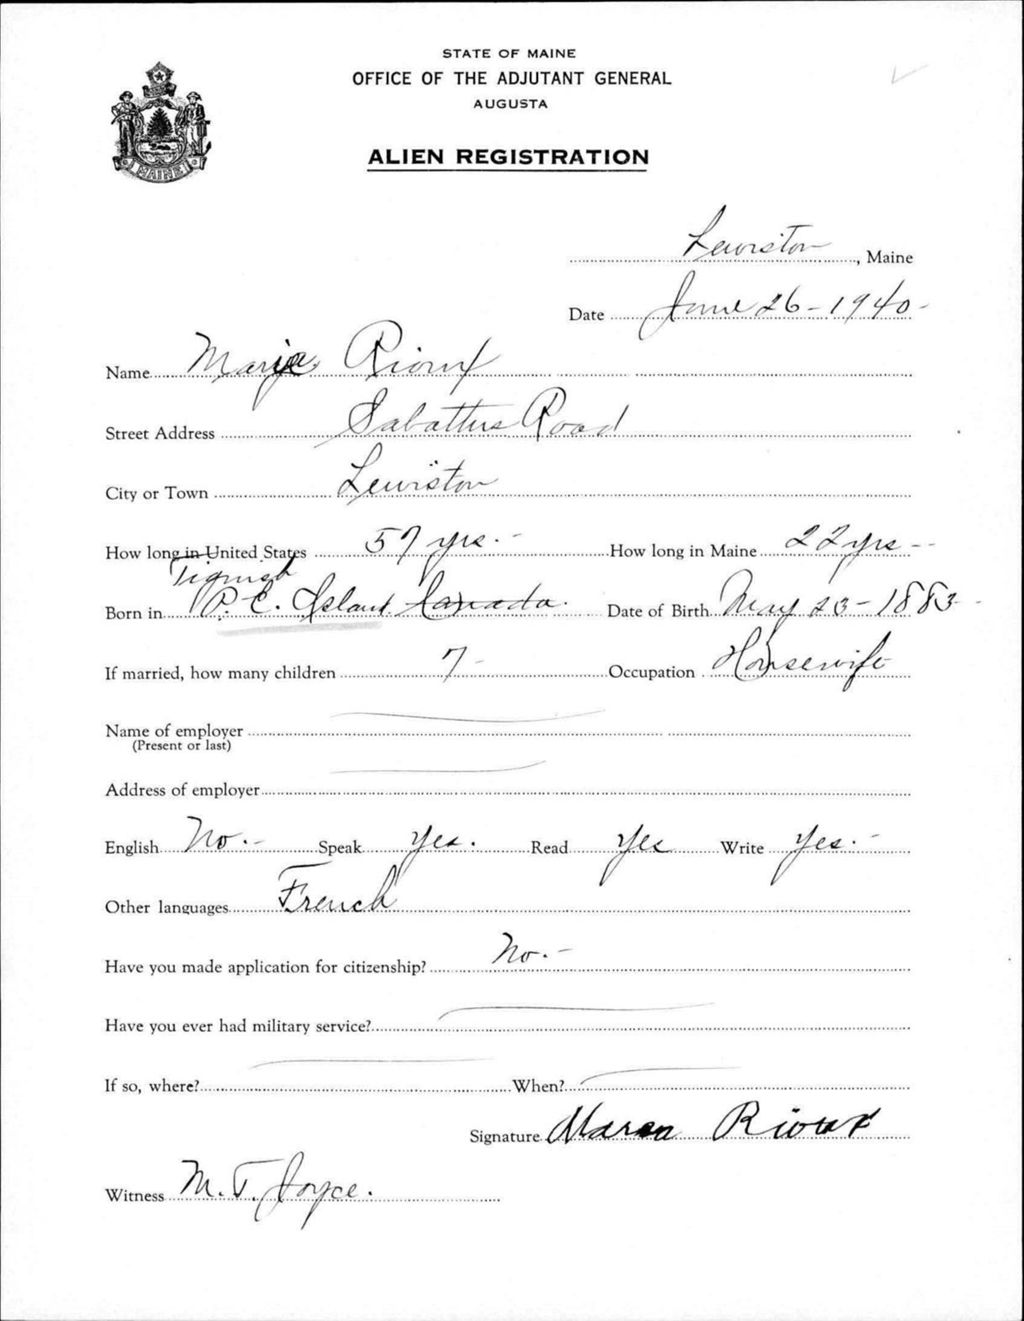 STATE OF MAINE
OFFICE OF THE ADJUTANT GENERAL
AUGUSTA
ALIEN REGISTRATION
MAINE
Lewiston, Maine
Date June 26-1940-
Name Rioux
Street Address Sabattus Road
City or Town Lewiston
How long in United States 57 yrs.- How long in Maine 22 yrs-
Tignish
Born in P.E. Island Canada. Date of Birth May 23-1883-
If married, how many children 7- Occupation Housewife
Name of employer
(Present or last)
Address of employer
English No.- Speak Yes. Read Yes Write Yes.-
Other languages French
Have you made application for citizenship? No.-
Have you ever had military service?
If so, where? When?
Signature Rioux
Witness M.T. Joyce.